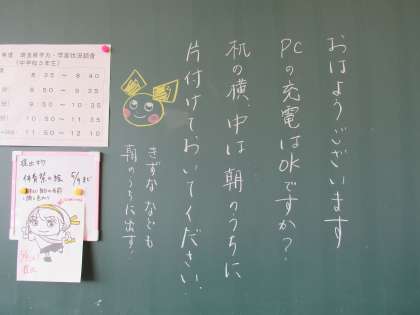 おはようございます
PCの充電はOKですか?
机の横、中は朝のうちに
片付けておいてください。
きずななども
朝のうちに出す!
(中学校3年生)
8 35 ~ 8 40
50 ~ 9 35
50 ~ 10 35
50 ~ 11 35
11 50 ~ 12 10
提出物
体育祭の絵 5/9まで